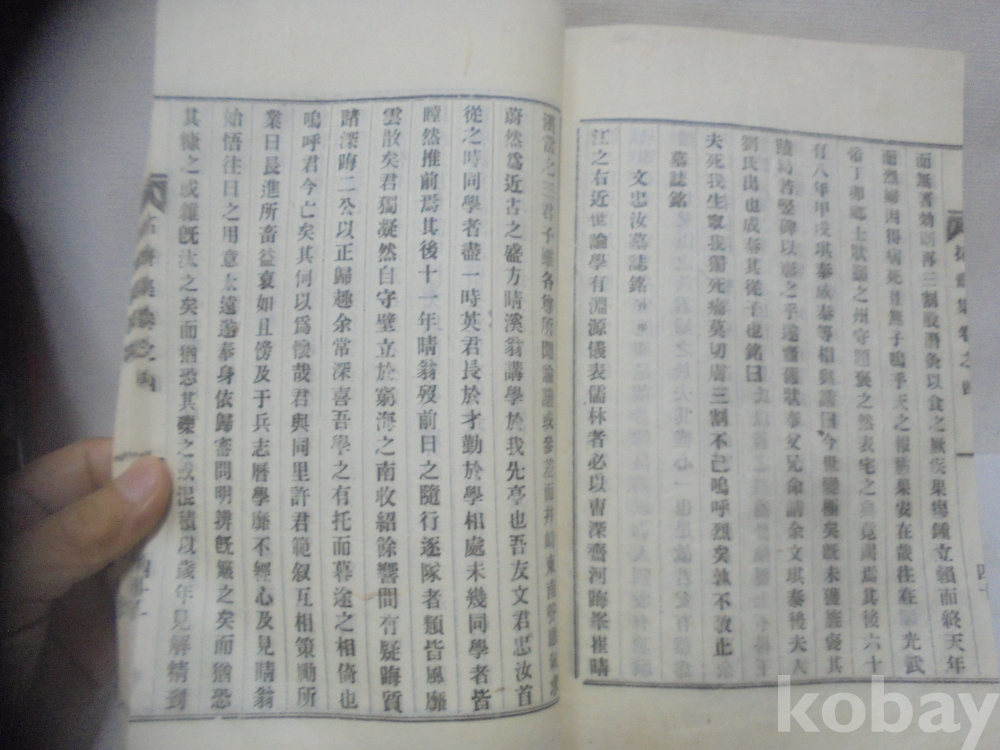 面無著効則再三割股潛灸以食之厥疾果瘳鍾立賴而終天年
而烈婦因得病死且無子嗚乎天之報施果安在哉往在 光武
帝丁卯鄕士狀聞之州守題褒之然表宅之典竟闕焉其後六十
有八年甲戌琪泰成泰等相與議曰今世變極矣旣未獲旌褒其
於時若竪碑以彰之乎遂齎舊狀奉父兄命請余文琪泰後夫人
劉氏出也成泰其從子也銘曰
夫死我生寧我獨死痛莫切膚三割不已嗚呼烈矣孰不敦止
墓誌銘
文忠汝墓誌銘
江之右近世論學有淵源儀表儒林者必以曺深齋河晦峯崔晴
溪當之三君子雖各尊所聞論議或參差而幷峙東南
蔚然爲近古之盛方晴溪翁講學於我先亭也吾友文君忠汝首
從之時同學者盡一時英君長於才勤於學相處未幾同學者皆
瞠然推前焉其後十一年晴翁歿前日之隨行逐隊者類皆風靡
雲散矣君獨凝然自守壁立於窮海之南收紹餘響間有疑晦質
諸深晦二公以正歸趣余常深喜吾學之有托而暮途之相倚也
嗚呼君今亡矣其何以爲懷哉君與同里許君範叙互相策勵所
業日長進所畜益裒如且傍及于兵志曆學靡不經心及見晴翁
始悟往日之用意太遠遂奉身依歸審問明辨旣簸之矣而猶恐
其糠之或雜旣汰之矣而猶恐其礫之或混積以歲年見解精到
四十
kobay